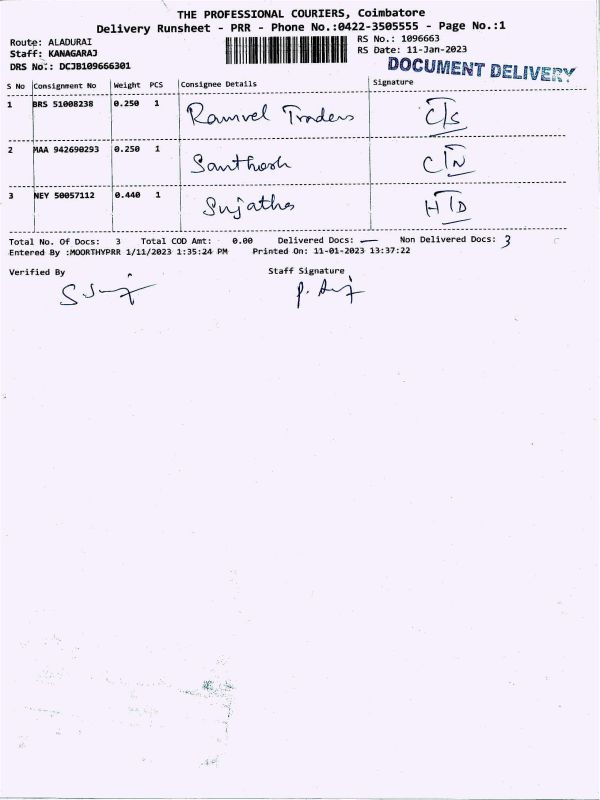 THE PROFESSIONAL COURIERS, Coimbatore
Delivery Runsheet - PRR - Phone No.:0422-3505555 - Page No.:1
Route: ALADURAI RS No.: 1096663
Staff: KANAGARAJ RS Date: 11-Jan-2023
DRS No.: DCJB109666301 DOCUMENT DELIVERY
S No Consignment No Weight PCS Consignee Details Signature
1 BRS 51008238 0.250 1 Ramvel Traders C/S
2 MAA 942690293 0.250 1 Santhosh C/N
3 NEY 50057112 0.440 1 Sujatha H/D
Total No. Of Docs: 3 Total COD Amt: 0.00 Delivered Docs: — Non Delivered Docs: 3
Entered By :MOORTHYPRR 1/11/2023 1:35:24 PM Printed On: 11-01-2023 13:37:22
Verified By Staff Signature